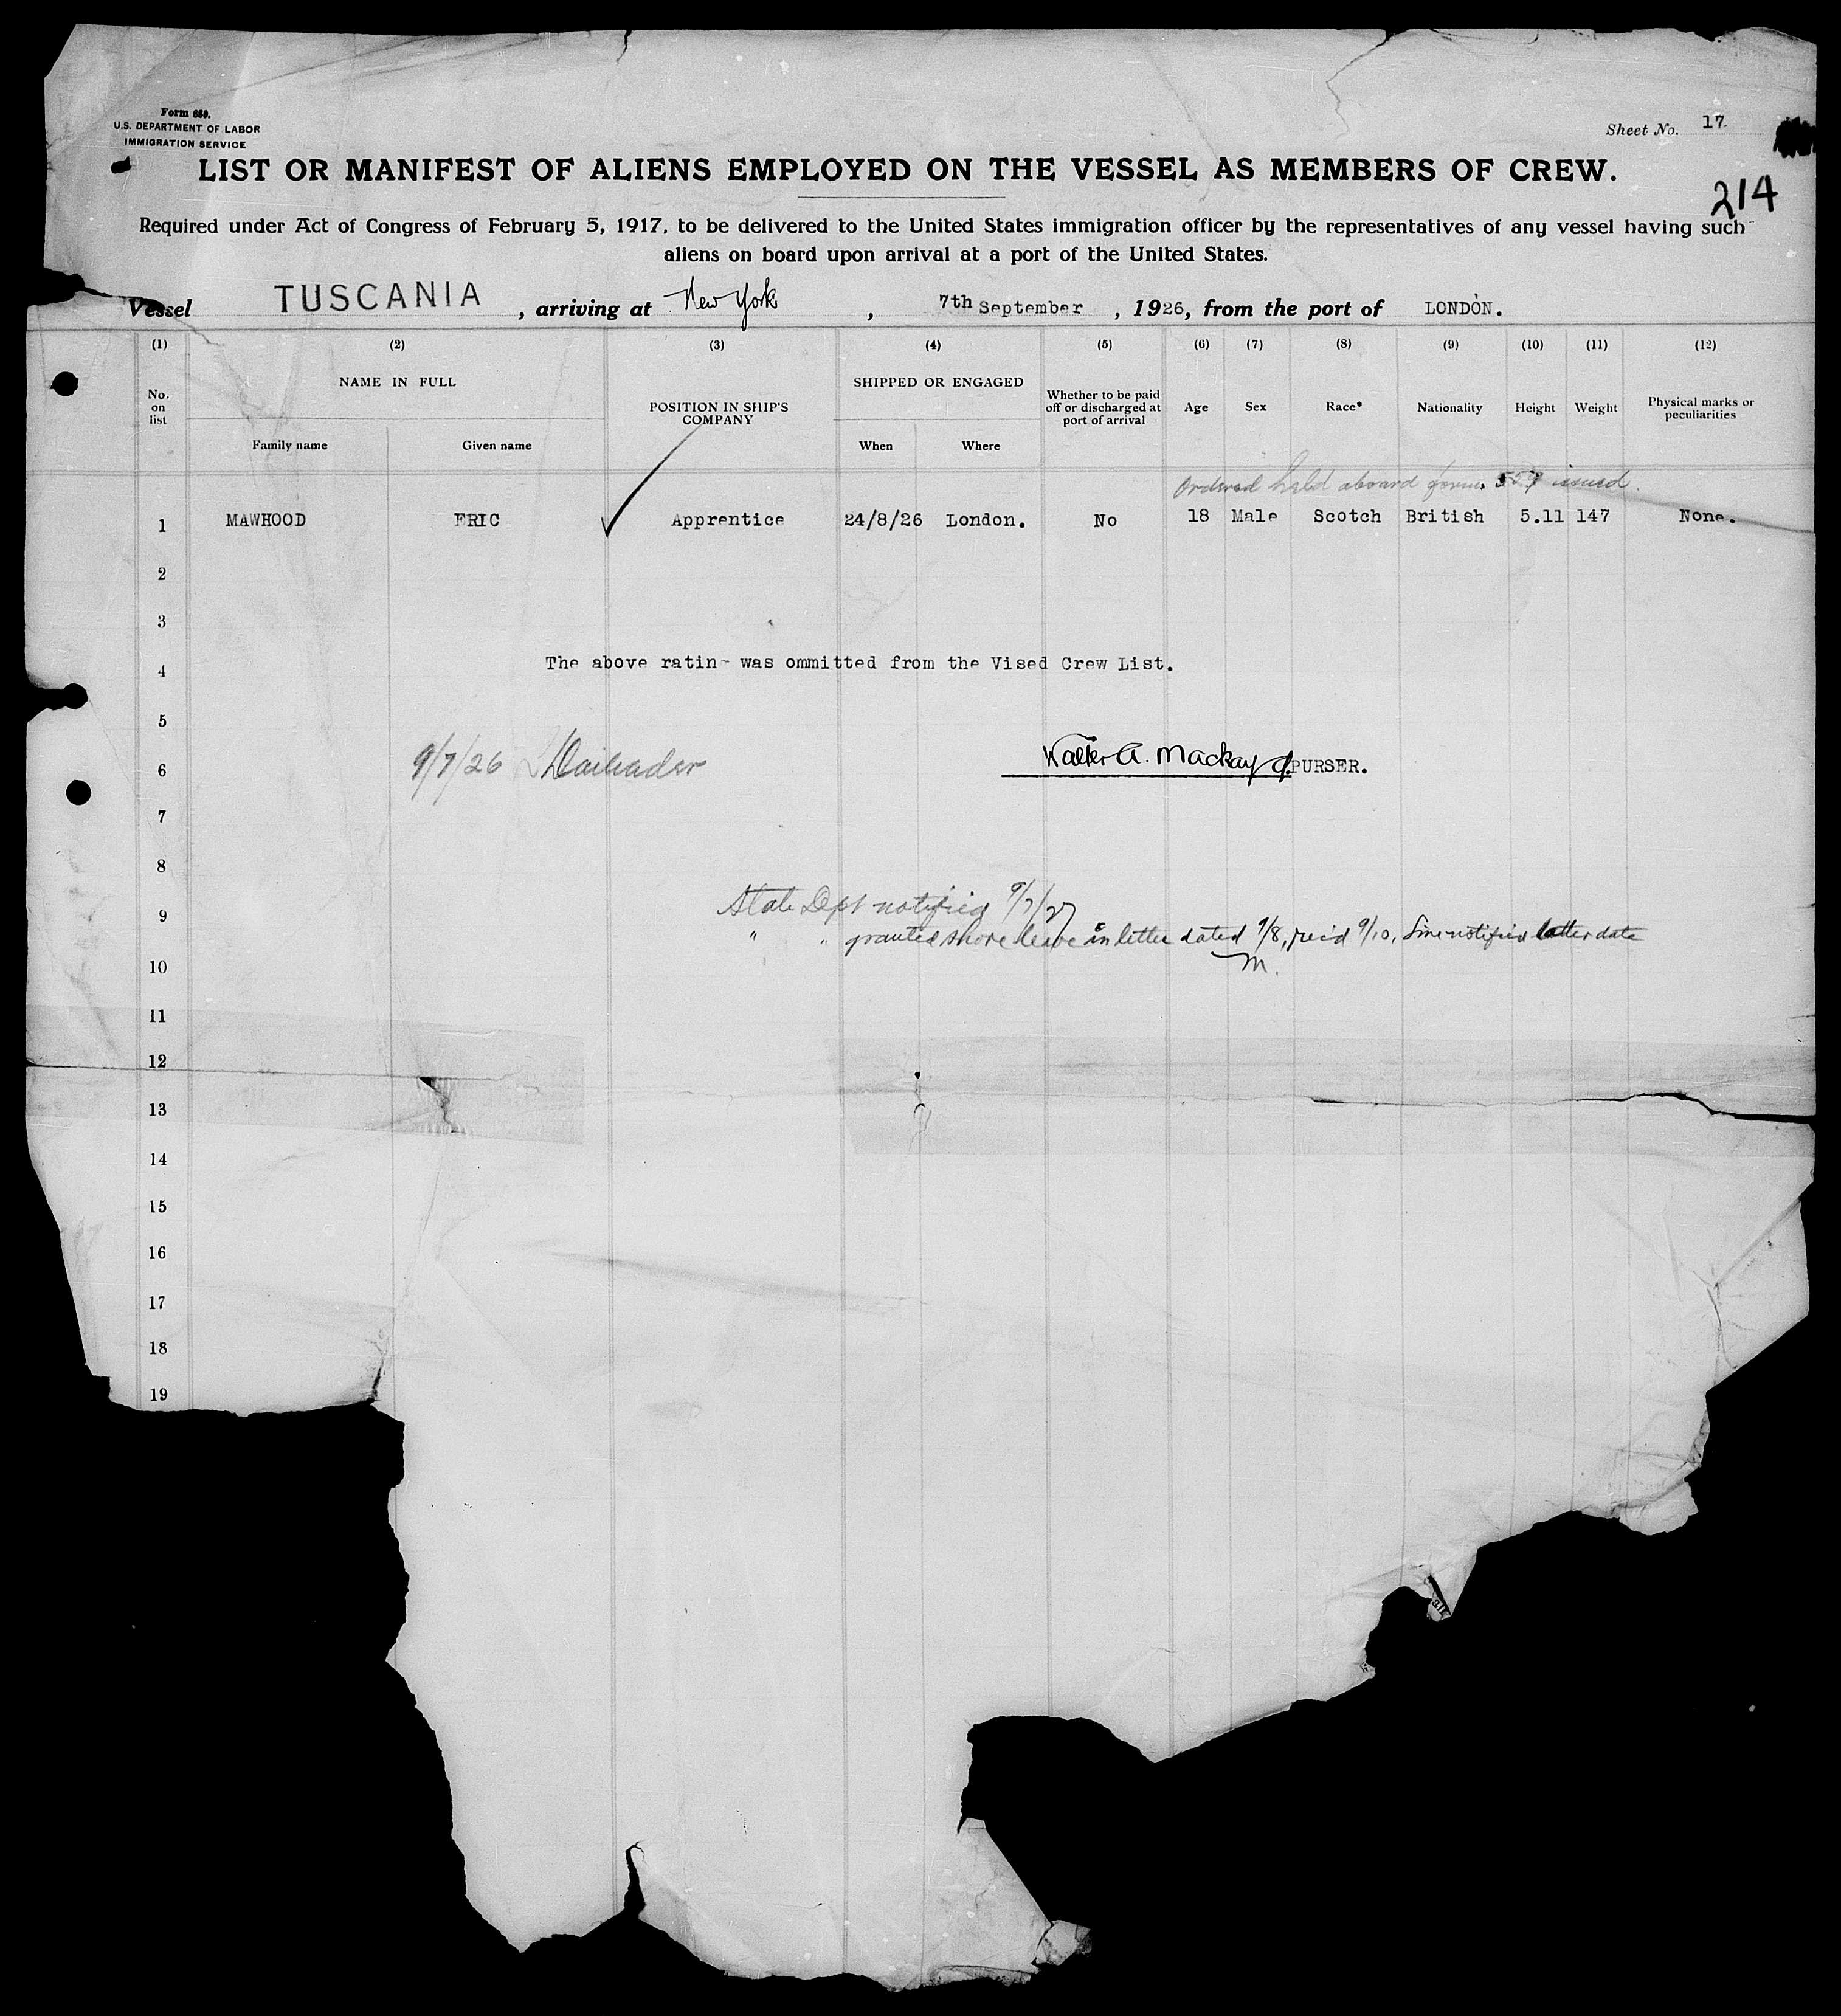 Form 680.
U.S. DEPARTMENT OF LABOR
IMMIGRATION SERVICE
Sheet No. 17
LIST OR MANIFEST OF ALIENS EMPLOYED ON THE VESSEL AS MEMBERS OF CREW.
214
Required under Act of Congress of February 5, 1917, to be delivered to the United States immigration officer by the representatives of any vessel having such
aliens on board upon arrival at a port of the United States.
Vessel TUSCANIA, arriving at New York, 7th September, 1926, from the port of LONDON.
(1) (2) (3) (4) (5) (6) (7) (8) (9) (10) (11) (12)
No. on list NAME IN FULL Family name Given name POSITION IN SHIP'S COMPANY SHIPPED OR ENGAGED When Where Whether to be paid off or discharged at port of arrival Age Sex Race* Nationality Height Weight Physical marks or peculiarities
Ordered held aboard form 559 issued.
1 MAWHOOD ERIC Apprentice 24/8/26 London. No 18 Male Scotch British 5.11 147 None.
2
3
4 The above ratin was ommitted from the Vised Crew List.
5
6 9/7/26 Walter A. Mackay PURSER.
7
8
9 State Dept notified 9/7/27
" " granted shore leave in letter dated 9/8, rec'd 9/10, Line notified latter date
M.
10
11
12
13
14
15
16
17
18
19